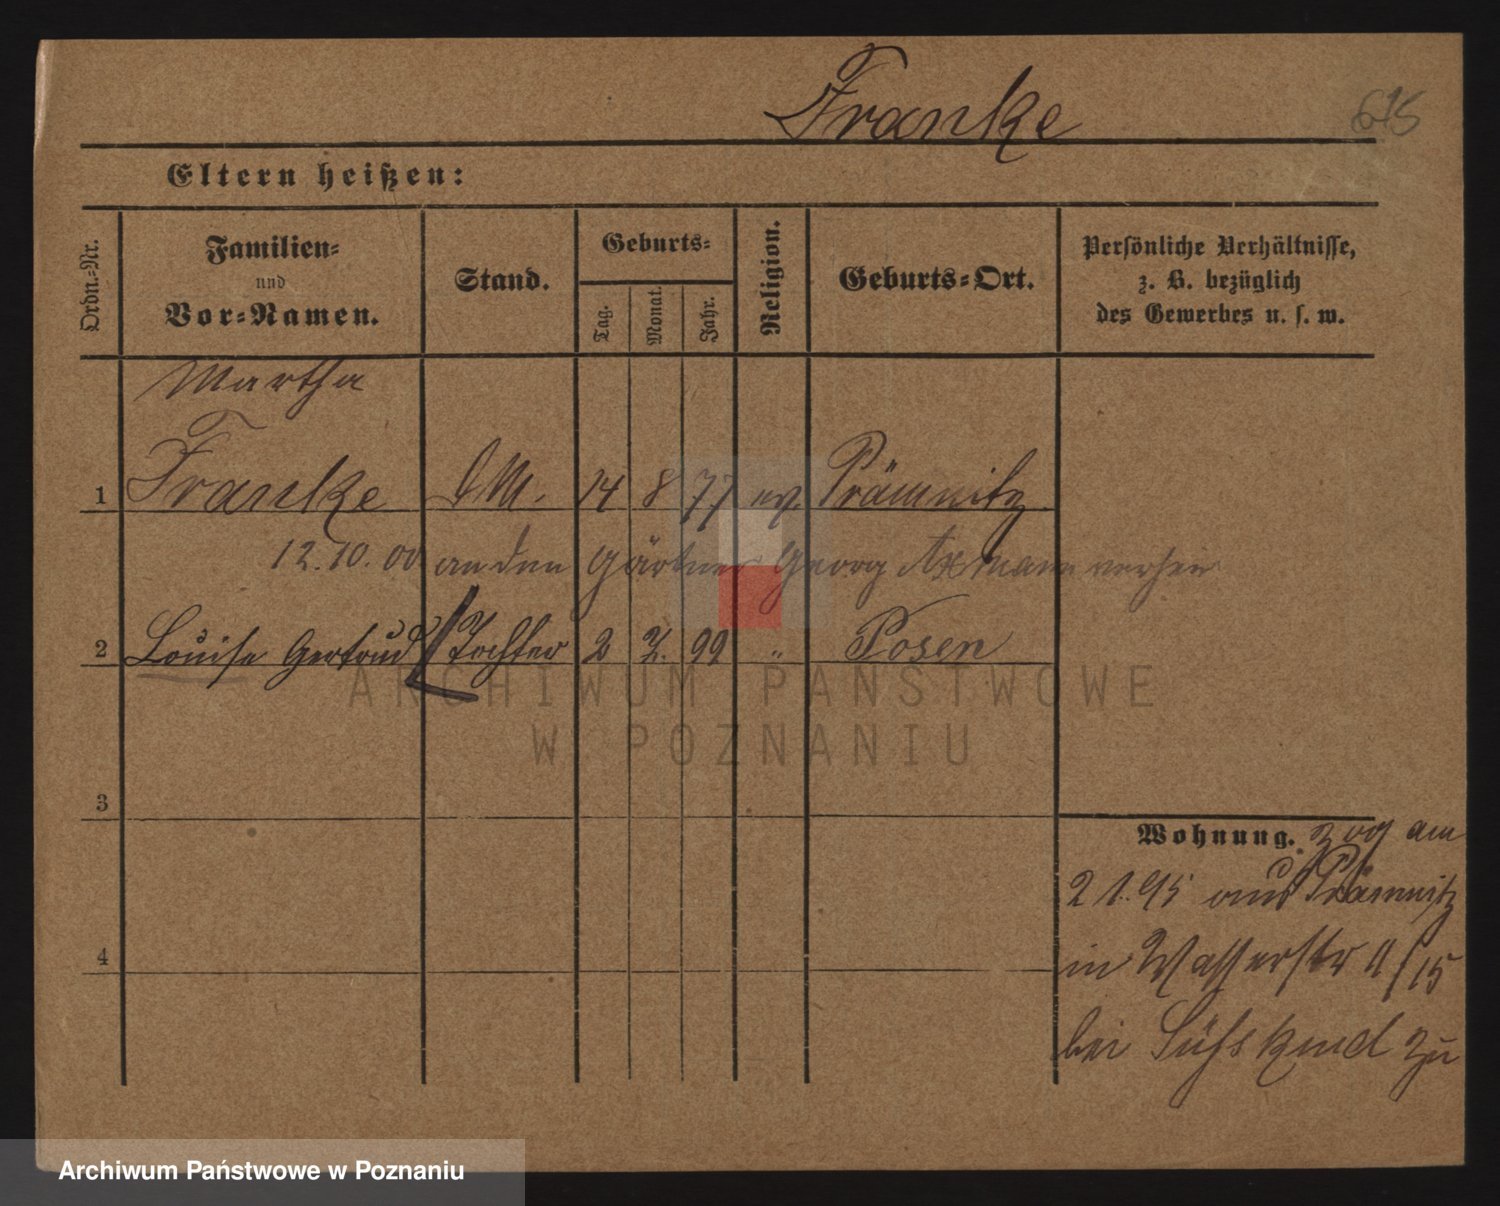 Franke 615
Eltern heißen:
Ordn.-Nr.
Familien-
und
Vor-Namen.
Stand.
Geburts-
Tag.
Monat.
Jahr.
Religion.
Geburts-Ort.
Persönliche Verhältnisse,
z. B. bezüglich
des Gewerbes u. s. w.
Martha
1 Franke 14 8 77 ev. Prämnitz
12.10.00 an den Gärtner Georg Axmann verheir
2 Louise Gertrud Tochter 2 7. 99 " Posen
3
4
Wohnung. zog am
2 1. 95 aus Prämnitz
in Wasserstr 11/15
bei Süßkind zu
ARCHIWUM PAŃSTWOWE
W POZNANIU
Archiwum Państwowe w Poznaniu